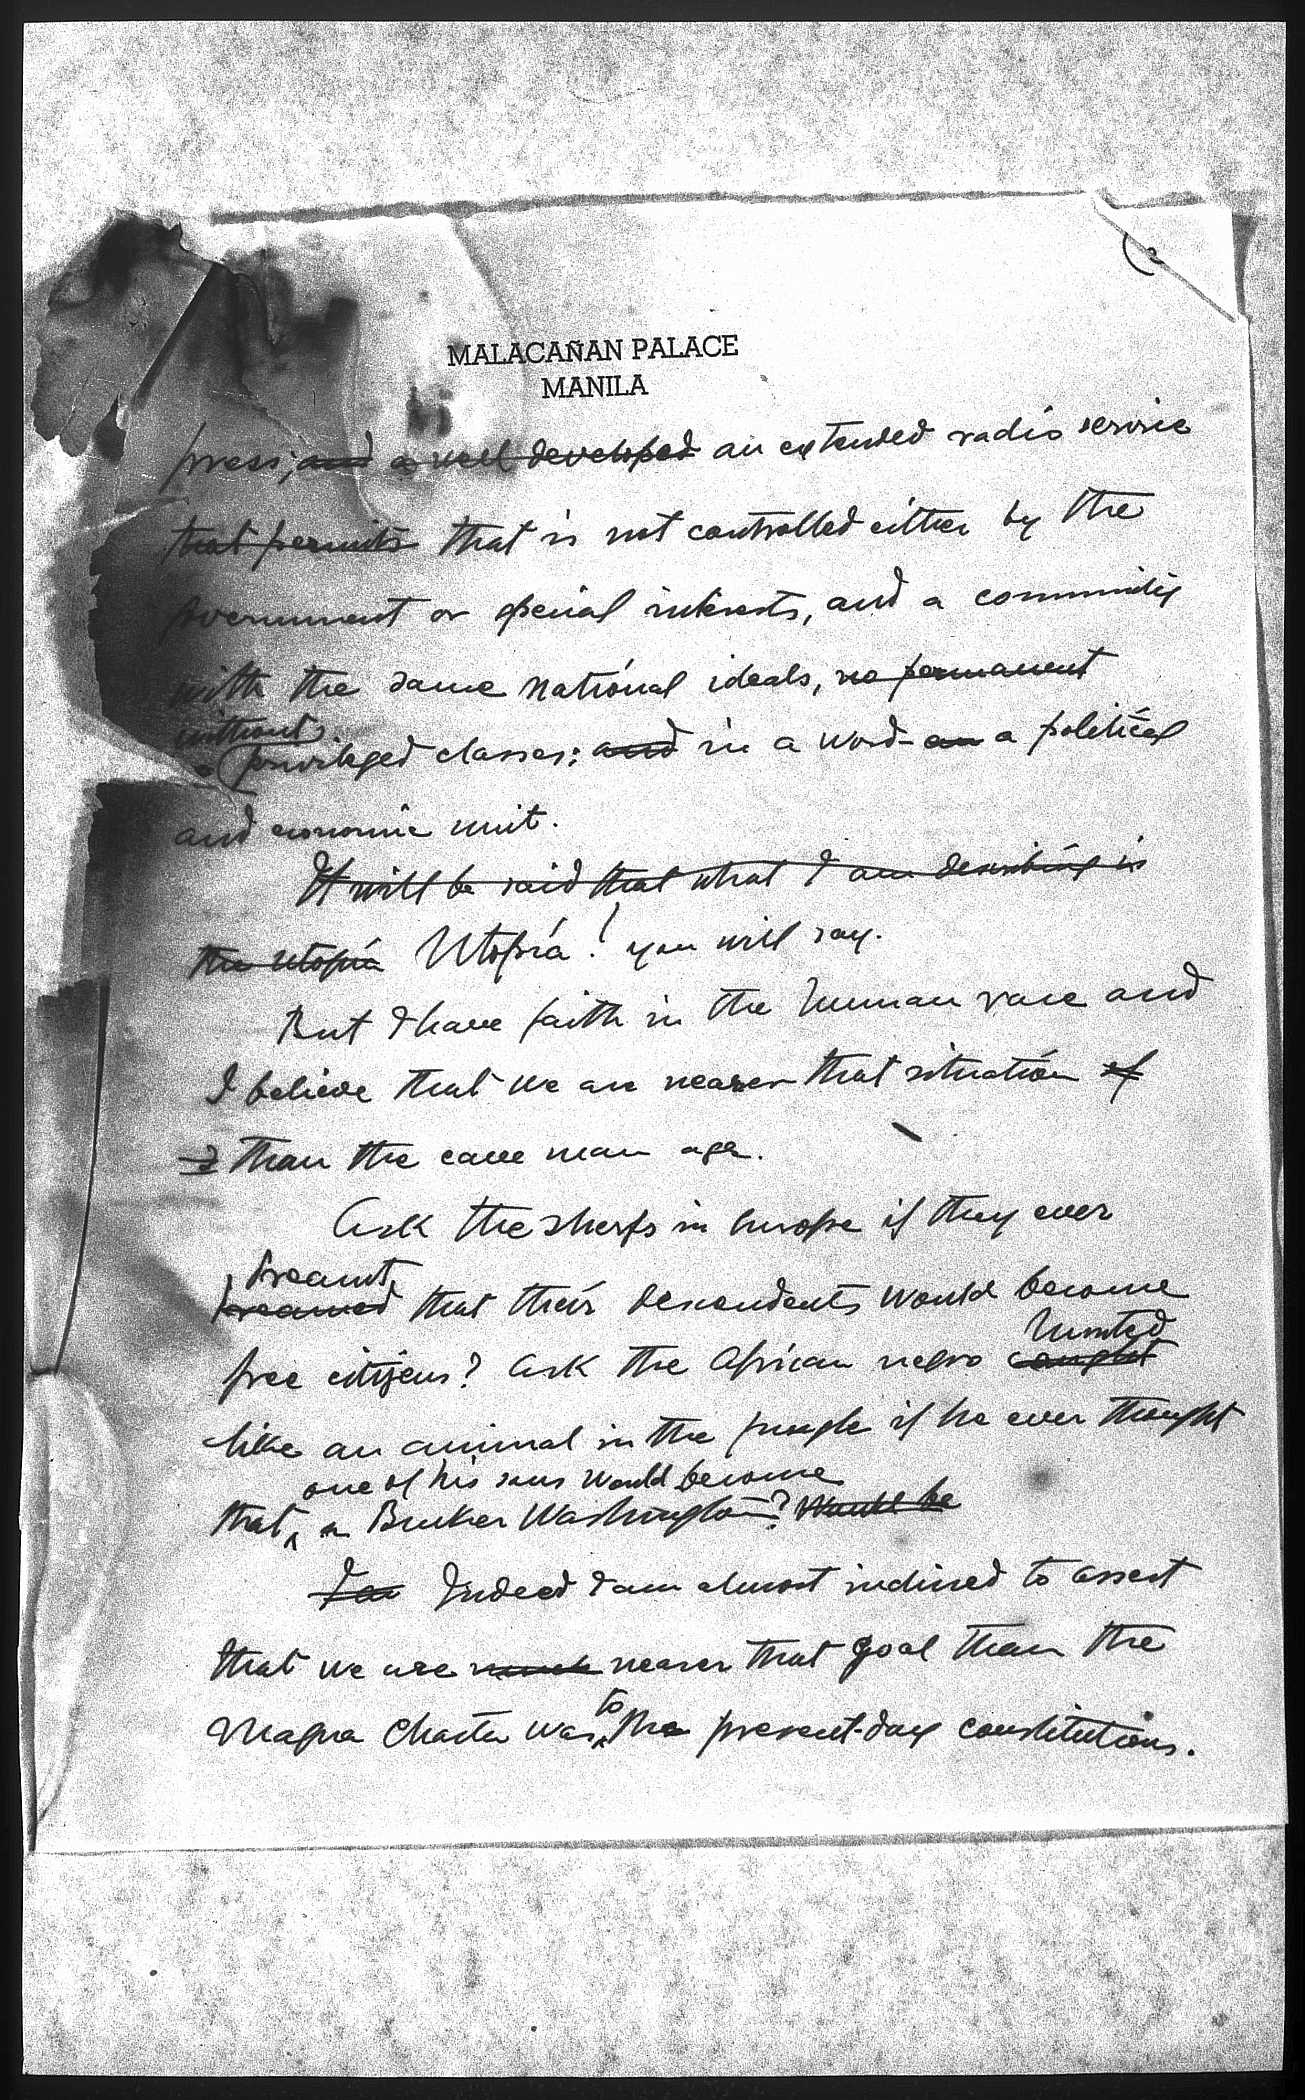 MALACAÑAN PALACE
MANILA
press; and a well developed an extended radio service
that permits that is not controlled either by the
government or special interests, and a community
with the same national ideals, no permanent
without
privileged classes; and in a word an a political
and economic unit.
It will be said that what I am describing is
the utopia Utopia! you will say.
But I have faith in the human race and
I believe that we are nearer that situation of
than the cave man age.
Ask the sherfs in Europe if they ever
dreamt
dreamed that their descendents would become
hunted
free citizens? Ask the African negro caught
like an animal in the jungle if he ever thought
one of his sons would become
that a Bucker Washington? would be
I am Indeed I am almost inclined to assert
that we are much nearer that goal than the
to
Magna Charta was the present-day constitutions.